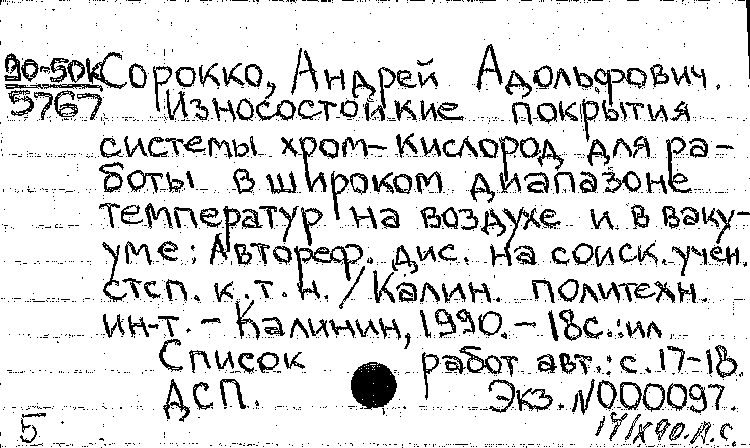 90-50к Сорокко, Андрей Адольфович.
5767 Износостойкие покрытия
системы хром-кислород для ра-
боты в широком диапазоне
температур на воздухе и в ваку-
уме: Автореф. дис. на соиск. учен.
стсп. к.т.н. / Калин. политехн.
ин-т. - Калинин, 1990. - 18с.: ил
Список работ авт.: с. 17-18.
ДСП. Экз. N000097.
5 17/X90. А.С.